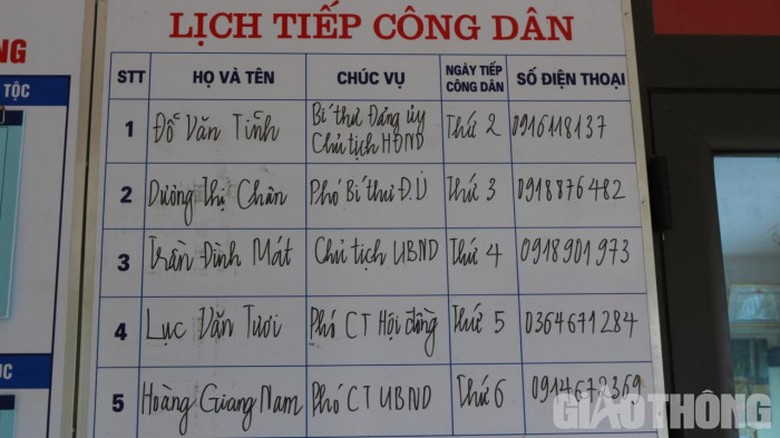 LỊCH TIẾP CÔNG DÂN
STT HỌ VÀ TÊN CHỨC VỤ NGÀY TIẾP CÔNG DÂN SỐ ĐIỆN THOẠI
1 Đỗ Văn Tĩnh Bí thư Đảng ủy Chủ tịch HĐND Thứ 2 0916118137
2 Dương Thị Chân Phó Bí thư Đ.U Thứ 3 0918876482
3 Trần Đình Mát Chủ tịch UBND Thứ 4 0918901973
4 Lục Văn Tươi Phó CT Hội đồng Thứ 5 0364671284
5 Hoàng Giang Nam Phó CT UBND Thứ 6 0914672369
TỘC
GIAO THÔNG